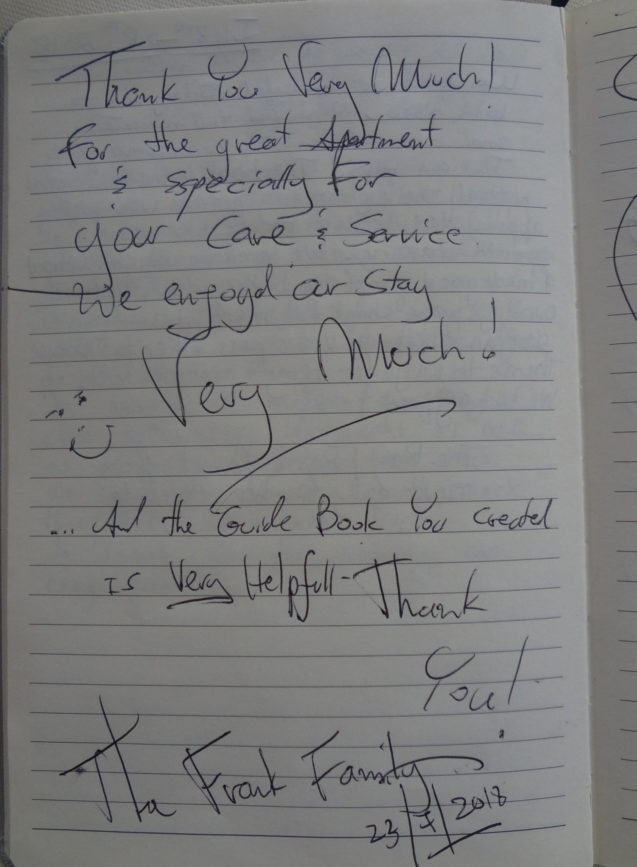 Thank You Very Much!
For the great Apartment
& Specially For
your Care & Service.
We enjoyd our Stay
Very Much!
... And the Guide Book You created
is Very Helpfull - Thank
You!
The Frank Family
23/7/2018